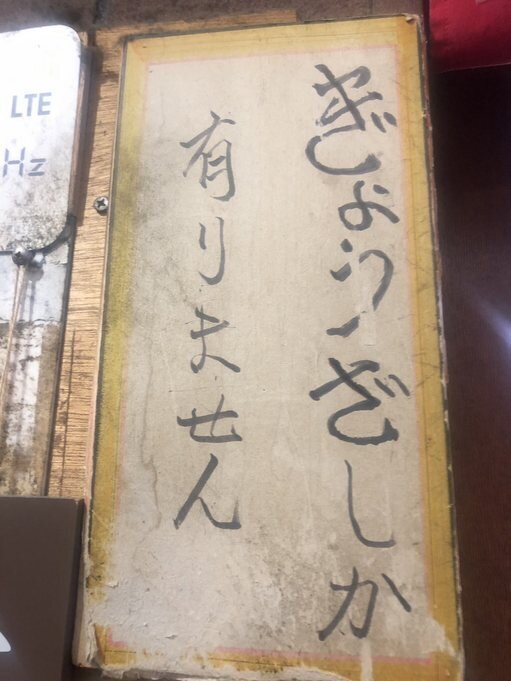 ぎょうざしか
有りません
LTE
Hz